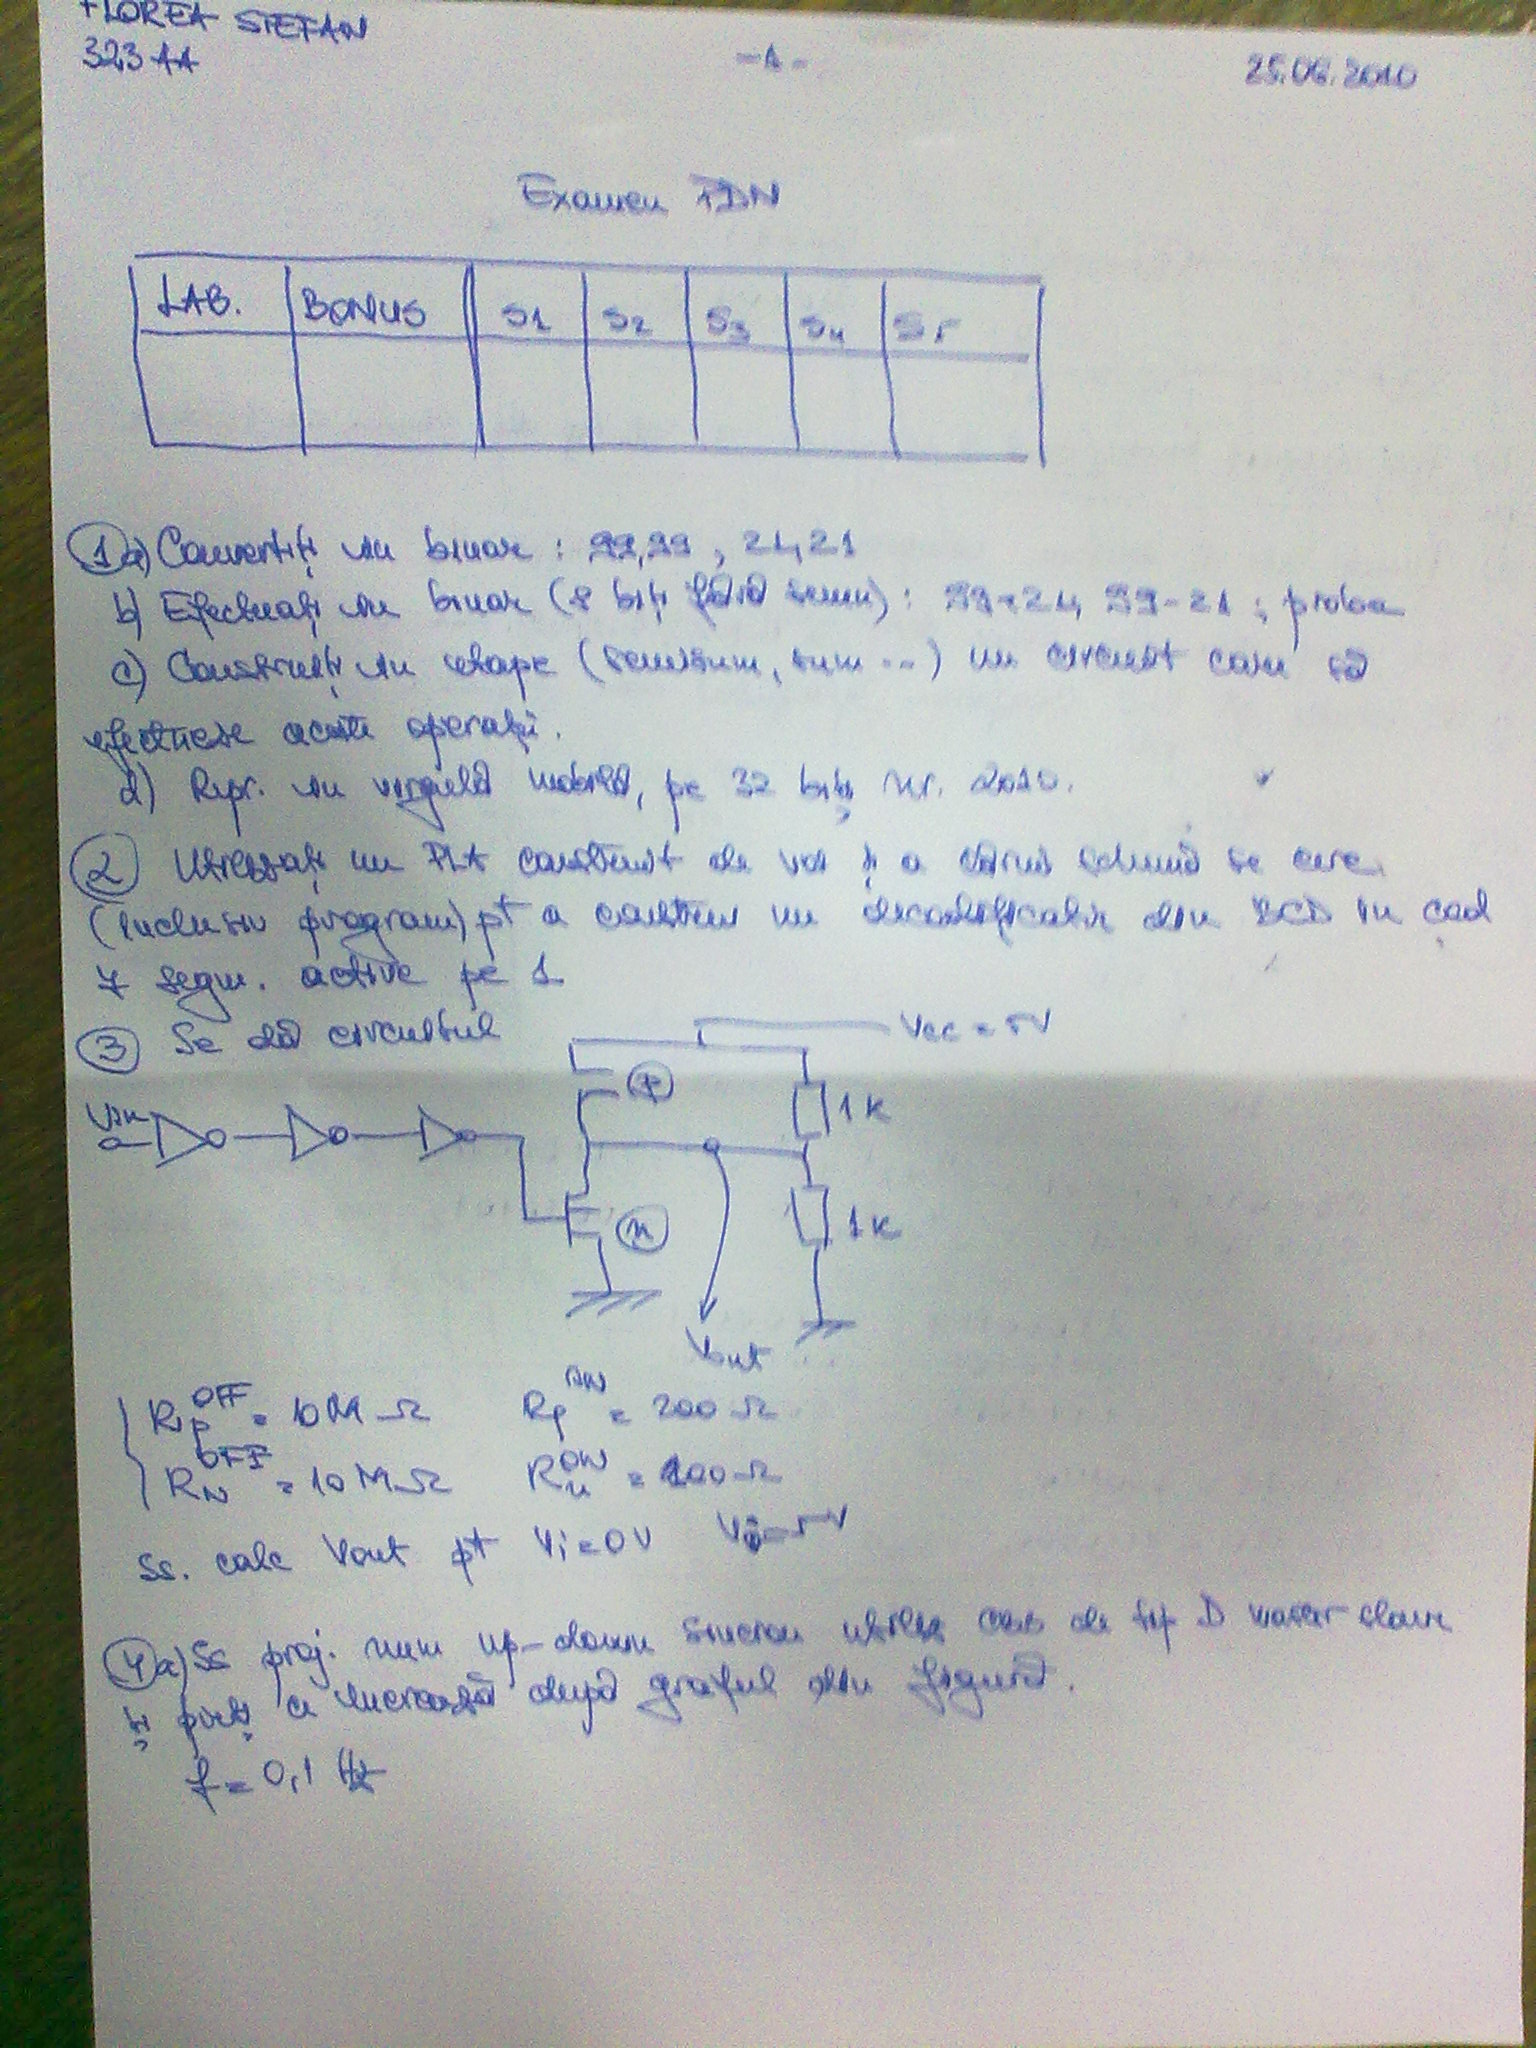 FLOREA STEFAN
323 AA
- 1 -
25.06.2010
Examen PDN
LAB. BONUS S1 S2 S3 S4 S5
1 a) Convertiți în binar : 99,99 , 21,21
b) Efectuați în binar (8 biți fără semn) : 99+21, 99-21 ; proba
c) Construiți în etape (semisum, sum ...) un circuit care să
efectueze aceste operații.
d) Repr. în virgulă mobilă, pe 32 biți nr. 2010.
2 Utilizați un PLA construit de voi și a cărui schemă se cere
(inclusiv program) pt a construi un decodificator din BCD în cod
7 segm. active pe 1
3 Se dă circuitul
Vcc = 5V
p
1K
Vin
n
1K
Vout
Rp OFF = 10 MΩ Rp ON = 200 Ω
RN OFF = 10 MΩ Rn ON = 100 Ω
Ss. calc Vout pt Vi = 0V Vi = 5V
4 a) Ss proj. num up-down sincron utiliz cbb de tip D master slave
și porți ce lucrează după graful din figură.
f = 0,1 Hz